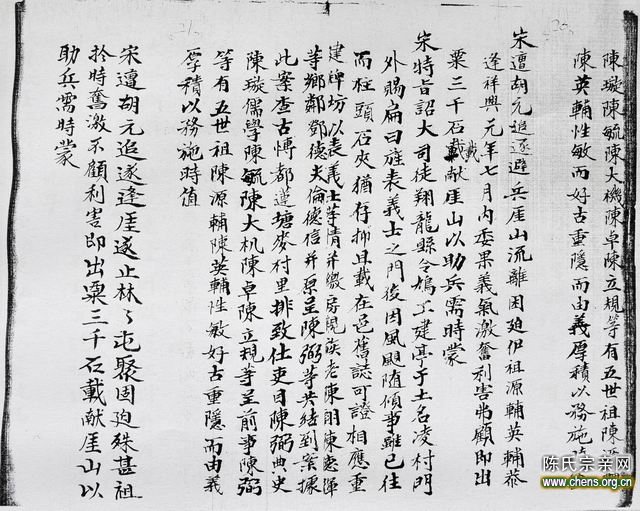 陳璇陳毓陳大機陳卓陳立規等有五世祖陳源
陳英輔性敏而好古重隱而由義厚積以務施
宋遭胡元追逐避兵崖山流離困廹伊祖源輔英輔恭
逢祥興元年七月內委果義氣激奮利害弗顧即出
粟三千石載献崖山以助兵需時蒙
宋特旨詔大司徒翔龍縣令鳩工建亭于土名凌村門
外賜扁曰旌表義士之門後因風颶隨傾事雖已往
而柱頭石夾猶存抑且載在邑舊誌可證相應重
建牌坊以表義士等情并繳房親族老陳朗陳憲
等鄉鄰鄧德夫倫德信并原呈陳弼等共結到案據
此案查古博都蓮塘麥村里排致仕吏目陳弼典史
陳璇儒學陳毓陳大机陳卓陳立規等呈前事陳弼
等有五世祖陳源輔陳英輔性敏好古重隱而由義
厚積以務施時值
宋遭胡元追逐逢崖遂止林々屯聚固廹殊甚祖
於時奮激不顧利害即出粟三千石載献崖山以
助兵需時蒙
陈氏宗亲网
www.chens.org.cn